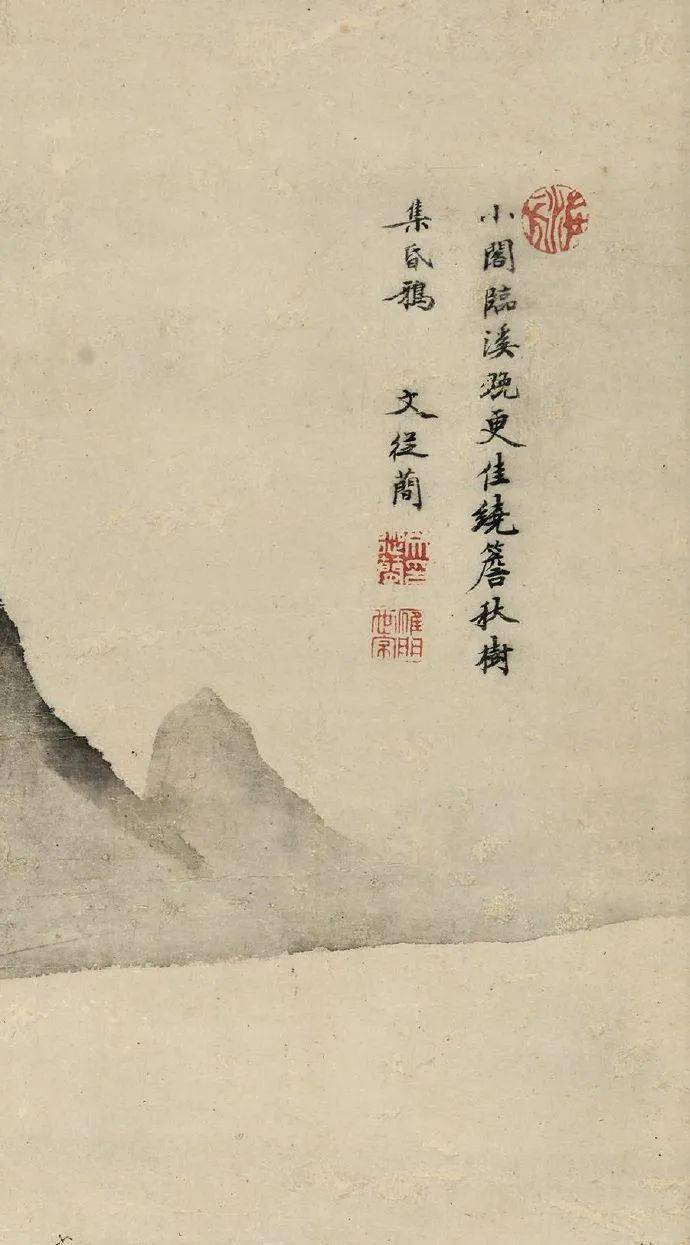 小閣臨溪晚更佳繞簷秋樹
集昏鴉　文從簡
雁門世家